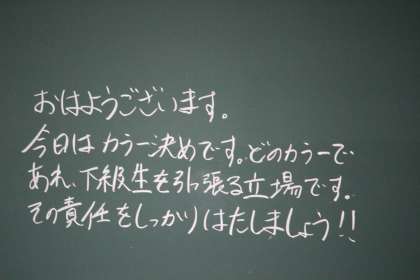 おはようございます。
今日はカラー決めです。どのカラーで
あれ、下級生を引っ張る立場です。
その責任をしっかりはたしましょう!!